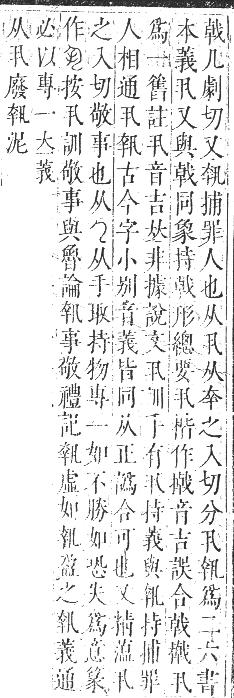 戟几劇切又瓡捕罪人也从丮从㚔之入切分丮瓡爲二六書
本義丮又與戟同象持戟形總要丮楷作撠音吉誤合戟撠丮
爲一舊註丮音吉𠀤非據說文丮訓手有丮持義與瓡持捕罪
人相通丮瓡古今字小别音義皆同从正譌合可也又精薀丮
之入切敬事也从 从手取持物專一如不勝如恐失爲意象
作 按丮訓敬事與魯論執事敬禮記執虛如執盈之執義通
必以專一大義
从丮廢執泥